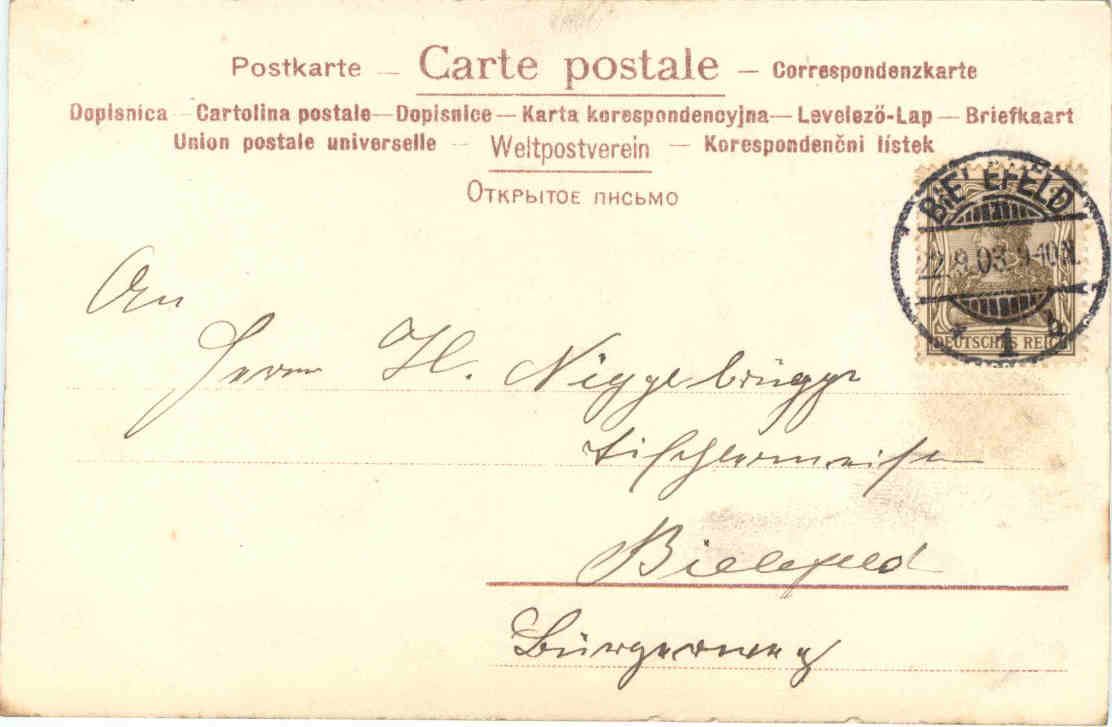 Postkarte — Carte postale — Correspondenzkarte
Dopisnica — Cartolina postale — Dopisnice — Karta korespondencyjna — Levelező-Lap — Briefkaart
Union postale universelle — Weltpostverein — Korespondenčni lístek
Открытое письмо
BIELEFELD
9.03. 9-10N.
* 1 b
DEUTSCHES REICH
An
Herrn H. Niggebrügge
Tischlermeister
Bielefeld
Bürgerweg